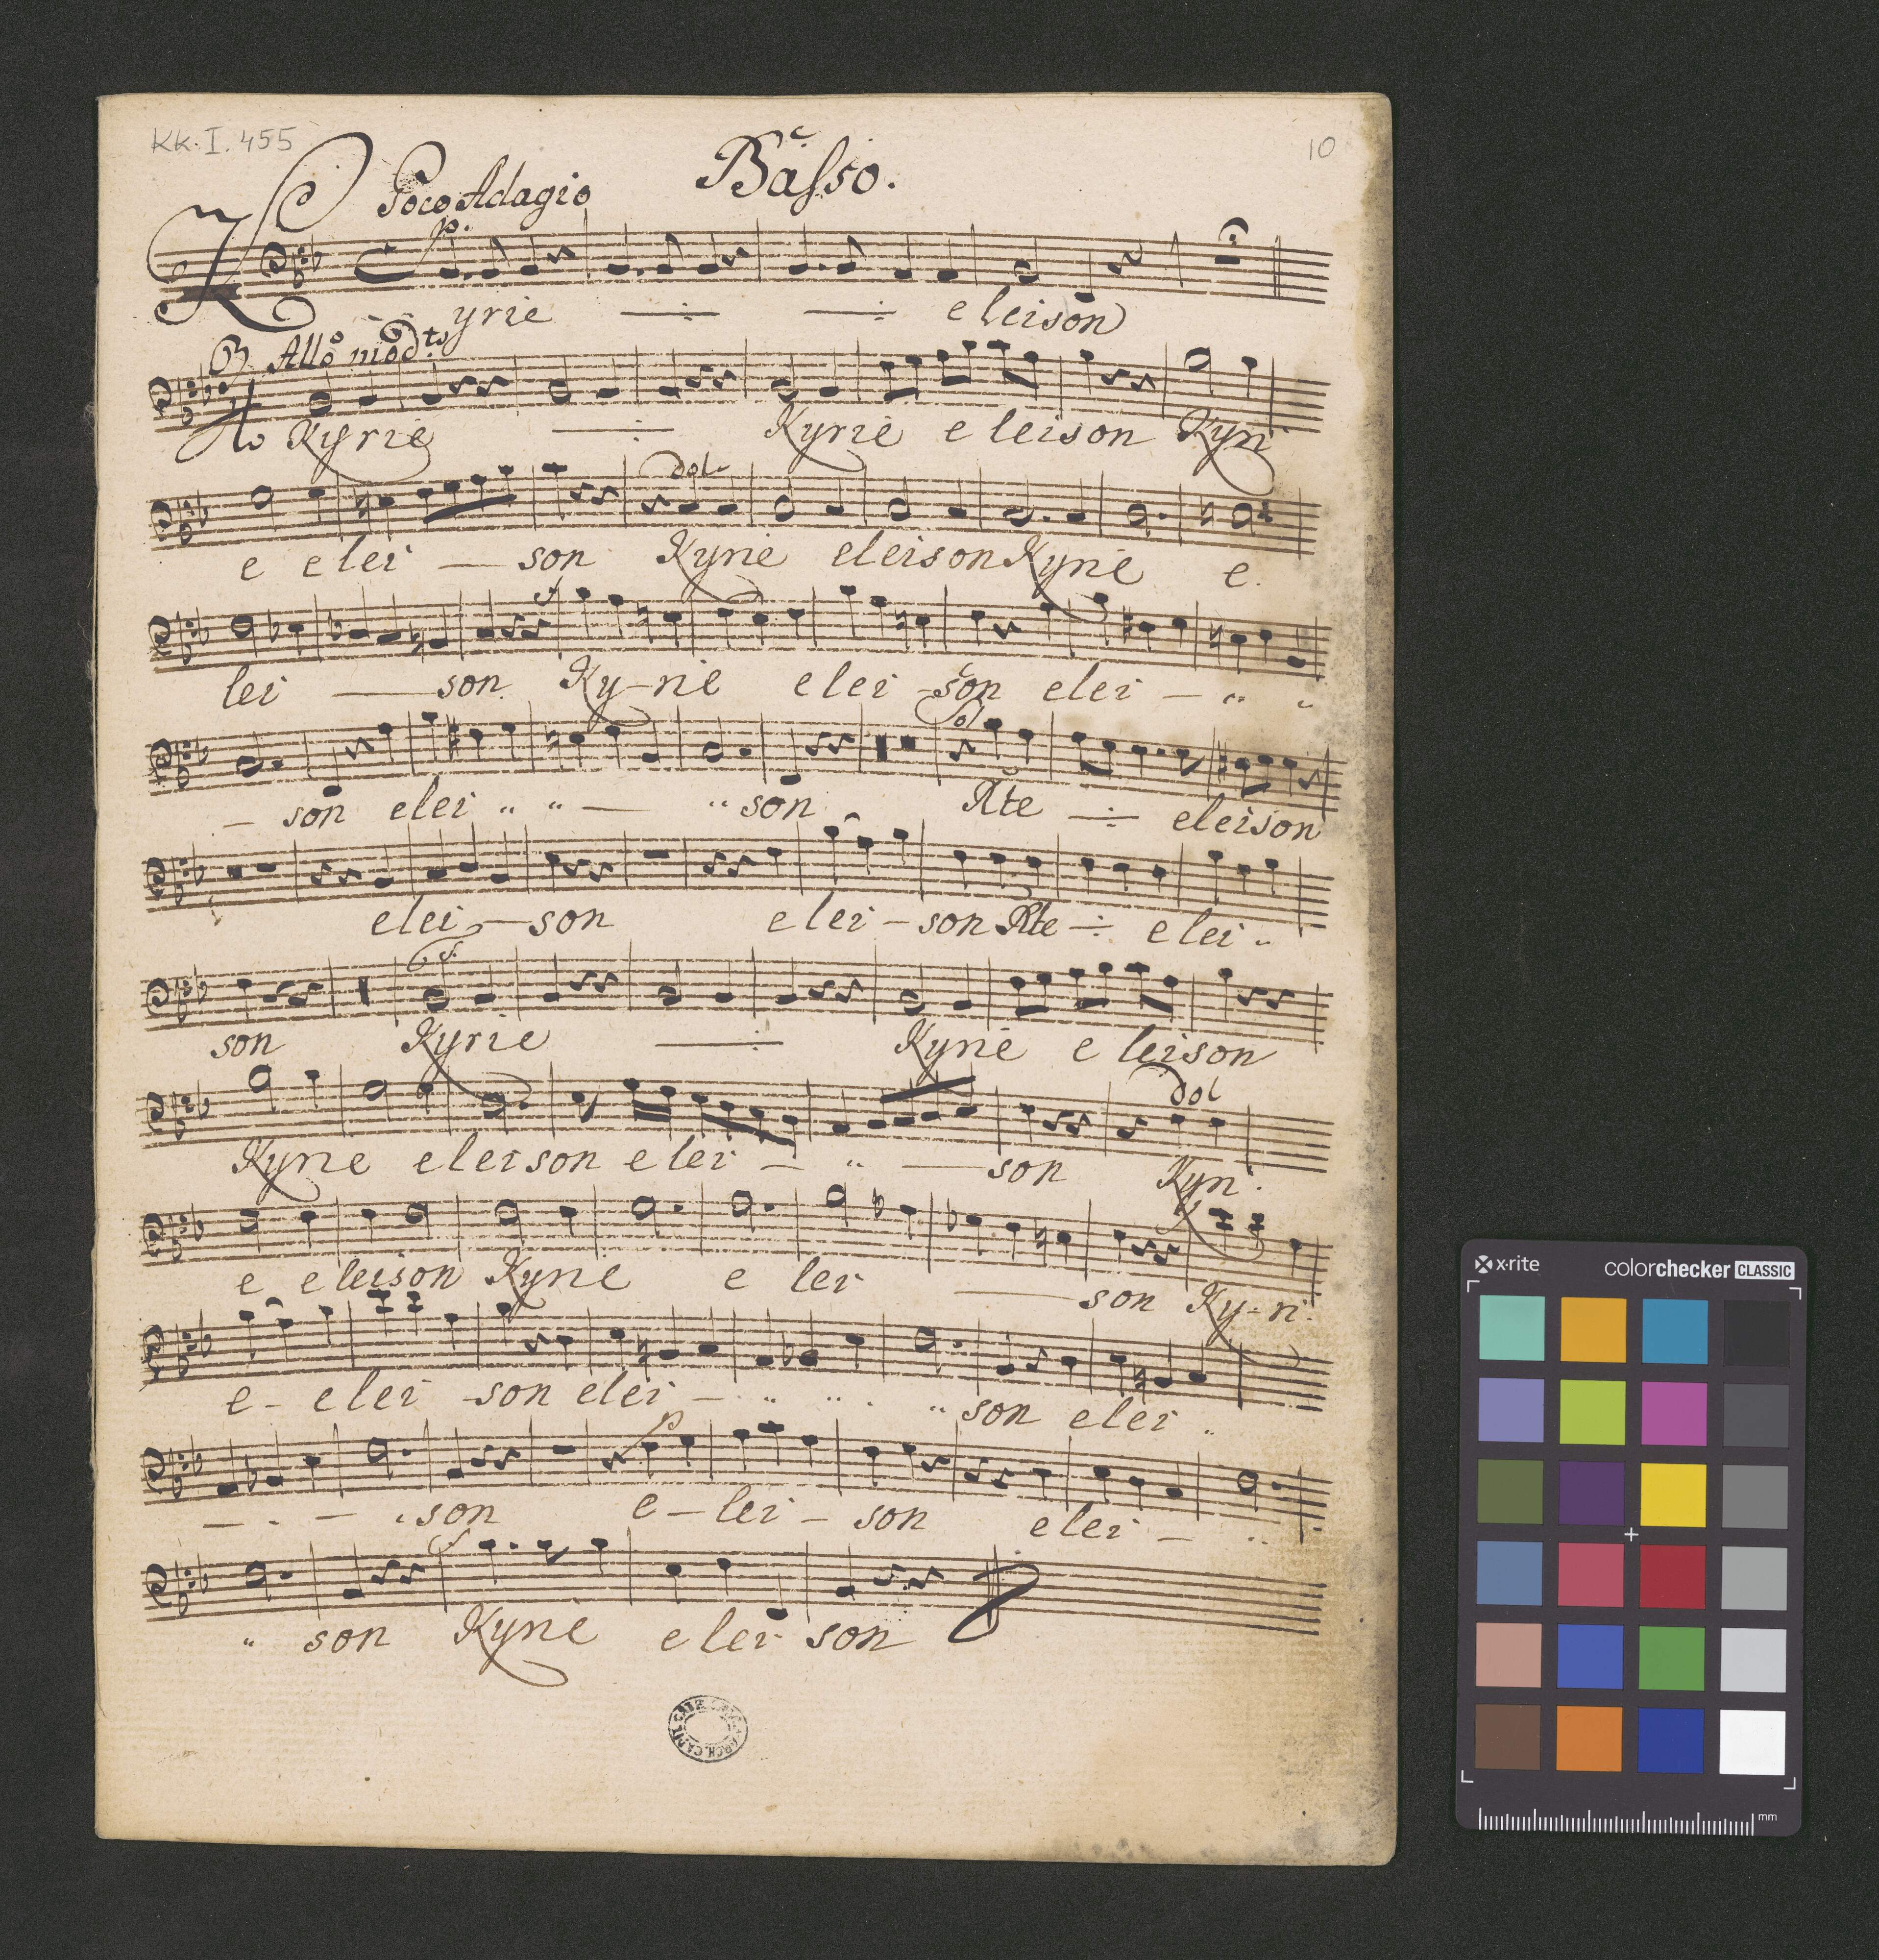 KK.I.455
10
Basso.
Poco Adagio
p.
Kyrie eleison
Allo modto
Kyrie Kyrie eleison Kyri
e elei — son Kyrie eleison Kyrie e.
dol
lei — son Ky-rie elei - son elei -
- son elei — son Kte eleison
elei — son elei - son Kte elei
son Kyrie Kyrie eleison
Kyrie eleison elei — son Kyri.
dol
e eleison Kyrie e lei — son Ky-ri.
e - elei - son elei - son elei
p
son e-lei - son elei -
son Kyrie elei son
x-rite
colorchecker CLASSIC
mm